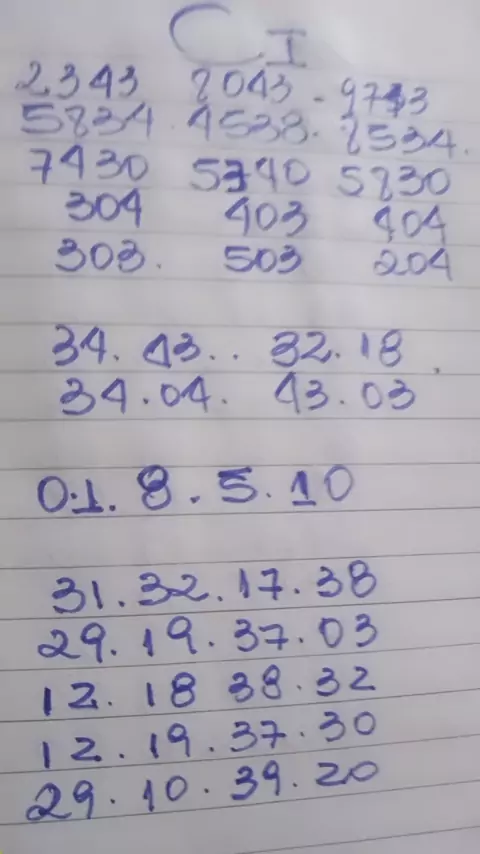 C.I
2343 8043 - 9743
5834. 4538. 8534.
7430 5740 5830
304 403 404
303. 503 204
34. 43.. 32. 18.
34.04. 43.03
0.1. 8. 5. 10
31.32.17.38
29.19.37.03
12. 18 38.32
12. 19.37.30
29. 10. 39.20